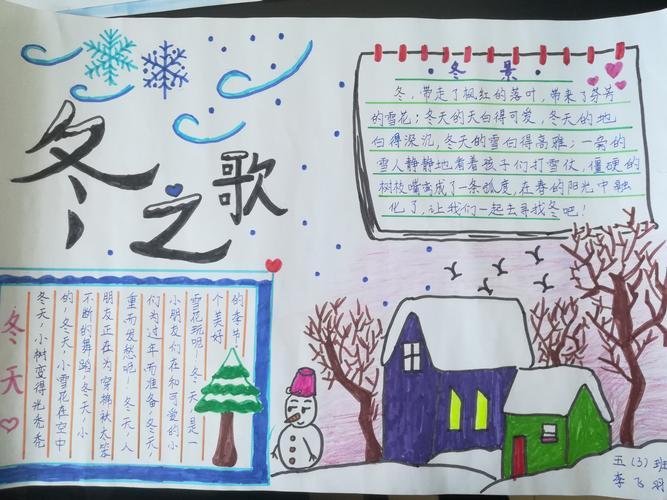 冬之歌
·冬 景·
冬,带走了枫红的落叶,带来了芬芳
的雪花;冬天的天白得可爱,冬天的地
白得深沉,冬天的雪白得高雅;一旁的
雪人静静地看着孩子们打雪仗,僵硬的
树枝嘴弯成了一条弧度,在春的阳光中融
化了,让我们一起去寻找冬吧!
冬天
冬天,小树变得光秃秃
的,冬天,小雪花在空中
不断的舞蹈,冬天,小
朋友正在为穿棉袄太笨
重而发愁呢!冬天,人
们为过年而准备,冬天,
小朋友们在和可爱的小
雪花玩呢!冬天,是一
个美好
的季节
五(3)班
李飞